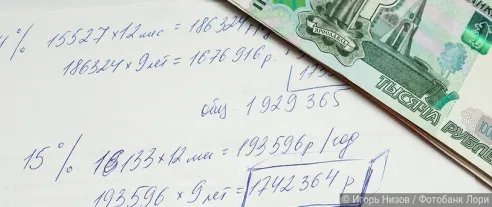 % 15527 × 12 мес = 186324
186324 × 9 лет = 1676916 р.
общ. 1929365
15 % 16133 × 12 мес = 193596 р / год
193596 × 9 лет = 1742364 р
ТЫСЯЧА РУБЛЕ
© Игорь Низов / Фотобанк Лори